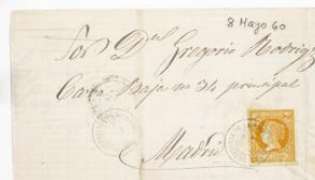 8 Mayo 60
Sor Dn Gregorio Rodrig
Cava Baja no 34 principal
Madrid